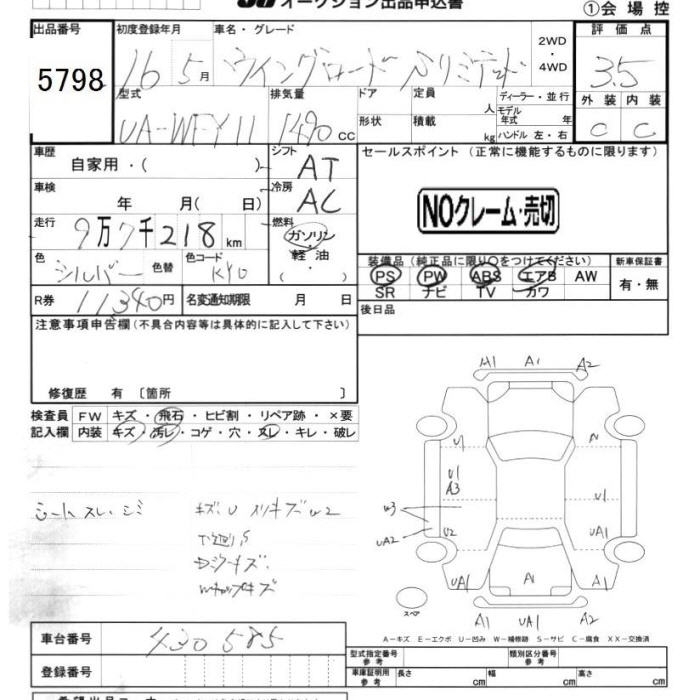 オークション出品申込書
①会場控
出品番号 初度登録年月 車名・グレード 評価点
5798 16 5月 ウイングロード Sリミテッド 2WD・4WD 3.5
型式 排気量 ドア 定員 人 ディーラー・並行 外装 内装
UA-WFY11 1490CC 形状 積載 kg モデル年式 年 ハンドル 左・右 C C
車歴 自家用・( ) シフト AT セールスポイント(正常に機能するものに限ります)
車検 年 月(日) 冷房 AC NOクレーム・売切
走行 9万7千218km 燃料 ガソリン・軽油・( )
色 シルバー 色替 色コード KY0 装備品(純正品に限り○をつけてください) 新車保証書
PS PW ABS エアB AW 有・無
SR ナビ TV カワ
R券 11340円 名変通知期限 月 日 後日品
注意事項申告欄(不具合内容等は具体的に記入して下さい)
修復歴 有〔箇所 〕
検査員 FW キズ・飛石・ヒビ割・リペア跡・×要
記入欄 内装 キズ・汚レ・コゲ・穴・ヌレ・キレ・破レ
A1 A1 A2
U1
U1 A3 U1
W3
UA2 U2 UA1
UA1 A1
スペア A1 UA1 A2
シート スレ、シミ キズ、U スリキズW2
下廻りS
A-キズ E-エクボ U-凹み W-補修跡 S-サビ C-腐食 XX-交換済
車台番号 430585
登録番号
型式指定番号 参考 類別区分番号 参考
車庫証明用 参考 長さ cm 幅 cm 高さ cm